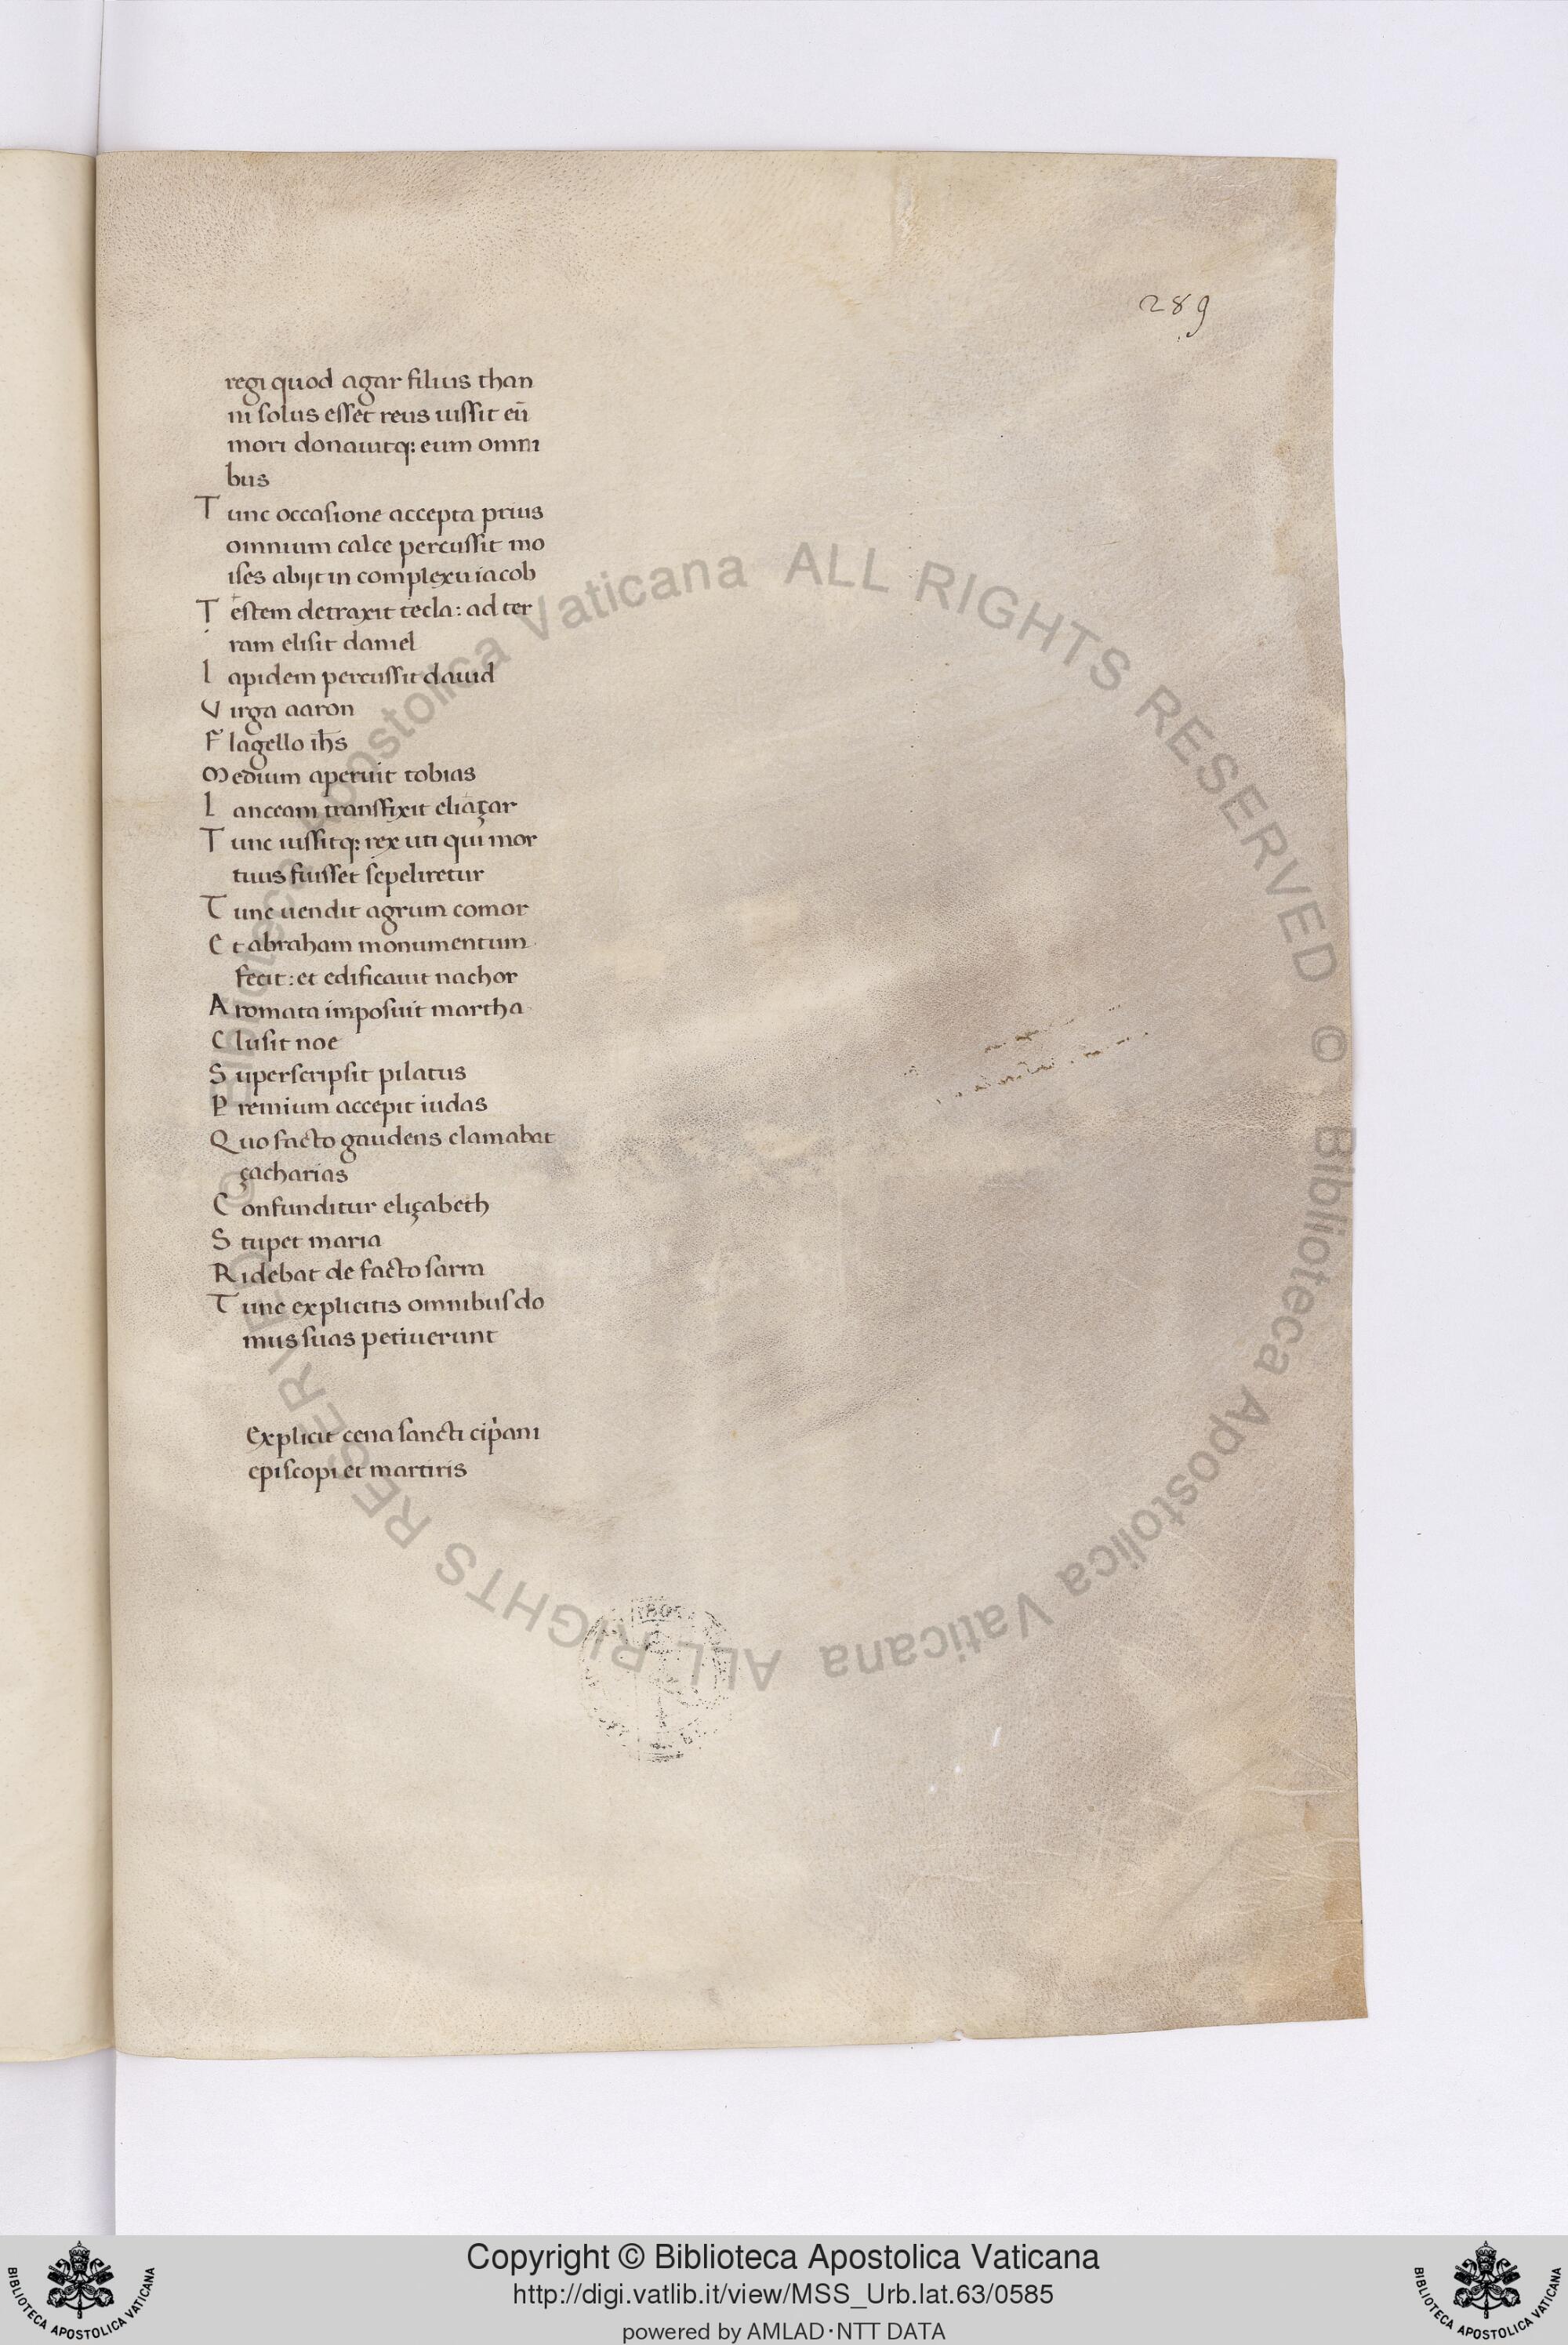 289
regi quod agar filius than
ni solus esset reus iussit eū
mori donauitq: eum omni
bus
Tunc occasione accepta prius
omnium calce percussit mo
ises abijt in complexu iacob
Testem detraxit tecla: ad ter
ram elisit daniel
lapidem percussit dauid
Virga aaron
Flagello ih̄s
Medium aperuit tobias
Lanceam transfixit eliaçar
Tunc iussitq: rex uti qui mor
tuus fuisset sepeliretur
Tunc uendit agrum comor
Et abraham monumentum
fecit: et edificauit nachor
Aromata imposuit martha
Clusit noe
Superscripsit pilatus
Premium accepit iudas
Quo facto gaudens clamabat
çacharias
Confunditur eliçabeth
Stupet maria
Ridebat de facto sarra
Tunc explicitis omnibus do
mus suas petiuerunt
Explicit cena sancti cip̓ani
episcopi et martiris
© Biblioteca Apostolica Vaticana ALL RIGHTS RESERVED © Biblioteca Apostolica Vaticana ALL RIGHTS RESERVED
Copyright © Biblioteca Apostolica Vaticana
http://digi.vatlib.it/view/MSS_Urb.lat.63/0585
powered by AMLAD·NTT DATA
BIBLIOTECA APOSTOLICA VATICANA
BIBLIOTECA APOSTOLICA VATICANA